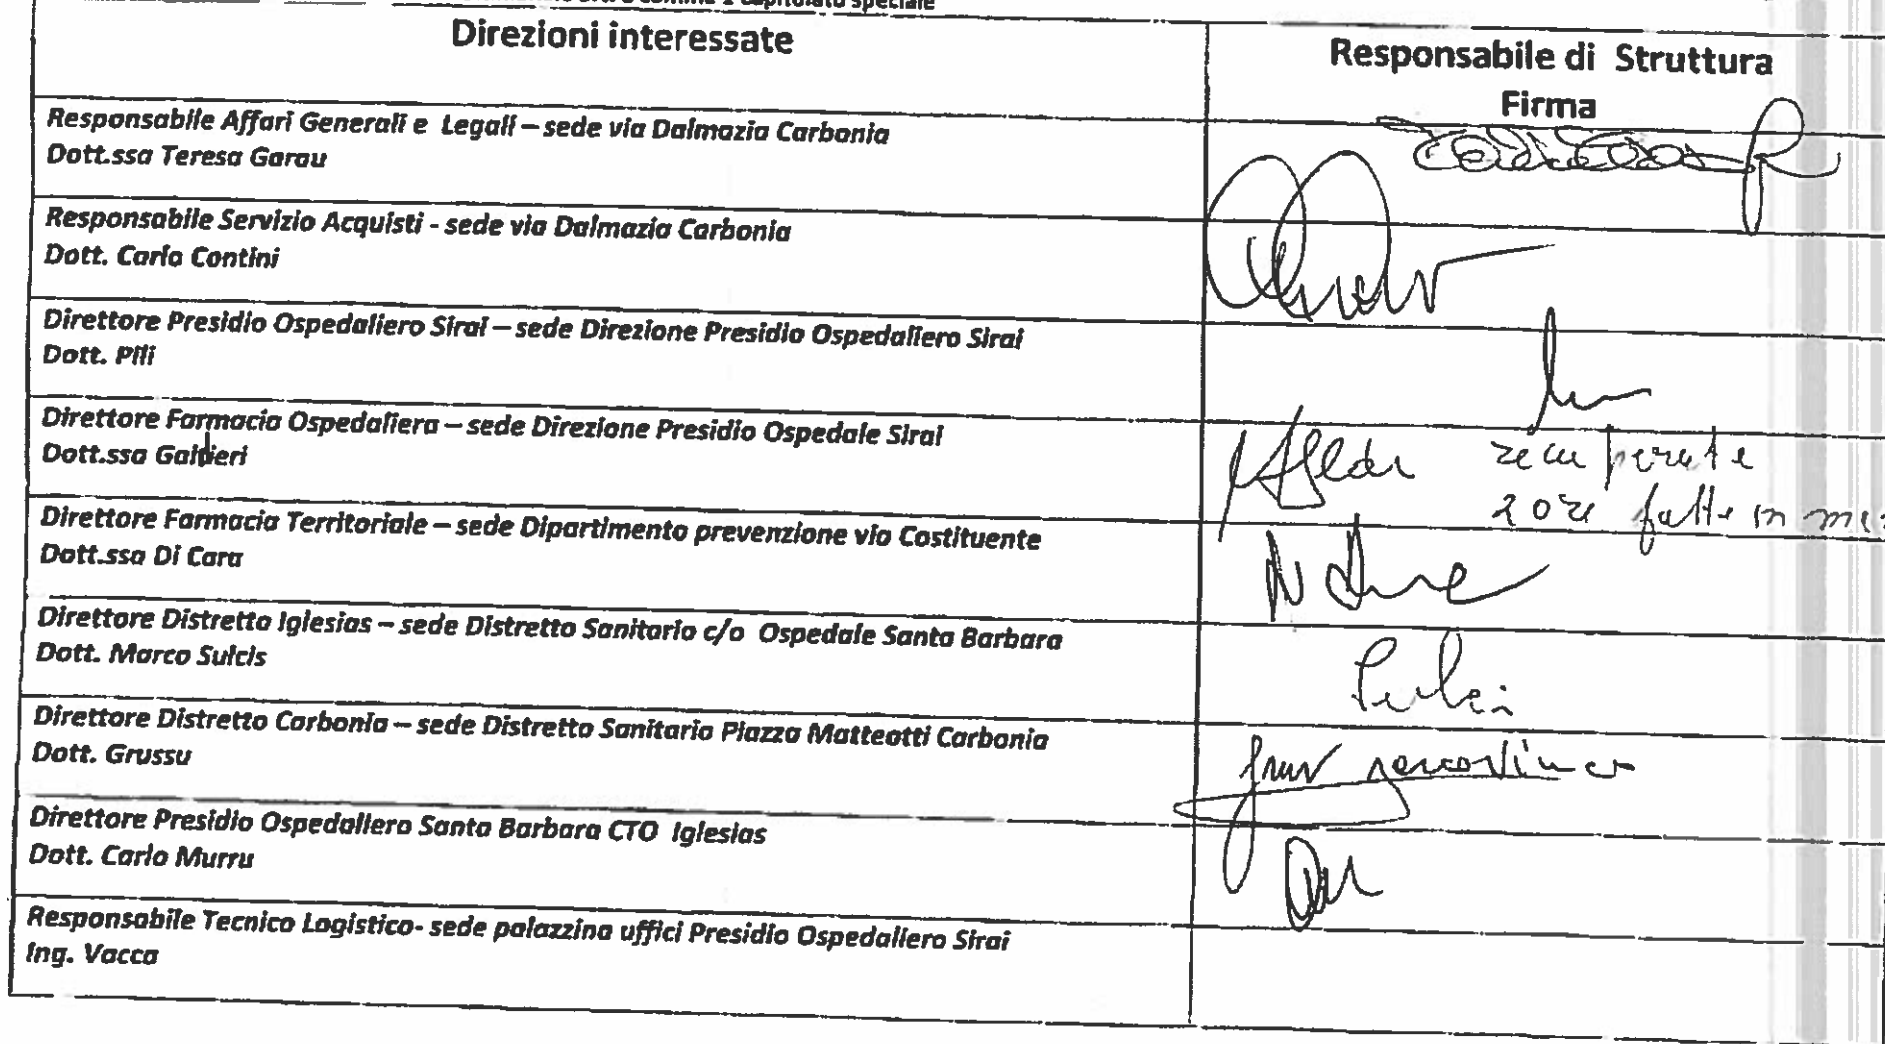 comma 1 capitolato speciale
Direzioni interessate
Responsabile di Struttura
Firma
Responsabile Affari Generali e Legali – sede via Dalmazia Carbonia
Dott.ssa Teresa Garau
Responsabile Servizio Acquisti - sede via Dalmazia Carbonia
Dott. Carlo Contini
Direttore Presidio Ospedaliero Sirai – sede Direzione Presidio Ospedaliero Sirai
Dott. Pili
Direttore Farmacia Ospedaliera – sede Direzione Presidio Ospedale Sirai
Dott.ssa Galtieri
recuperate
2 ore fatte in
Direttore Farmacia Territoriale – sede Dipartimento prevenzione via Costituente
Dott.ssa Di Cara
Direttore Distretto Iglesias – sede Distretto Sanitario c/o Ospedale Santa Barbara
Dott. Marco Sulcis
Sulcis
Direttore Distretto Carbonia – sede Distretto Sanitario Piazza Matteotti Carbonia
Dott. Grussu
Direttore Presidio Ospedaliero Santa Barbara CTO Iglesias
Dott. Carlo Murru
Responsabile Tecnico Logistico- sede palazzina uffici Presidio Ospedaliero Sirai
Ing. Vacca